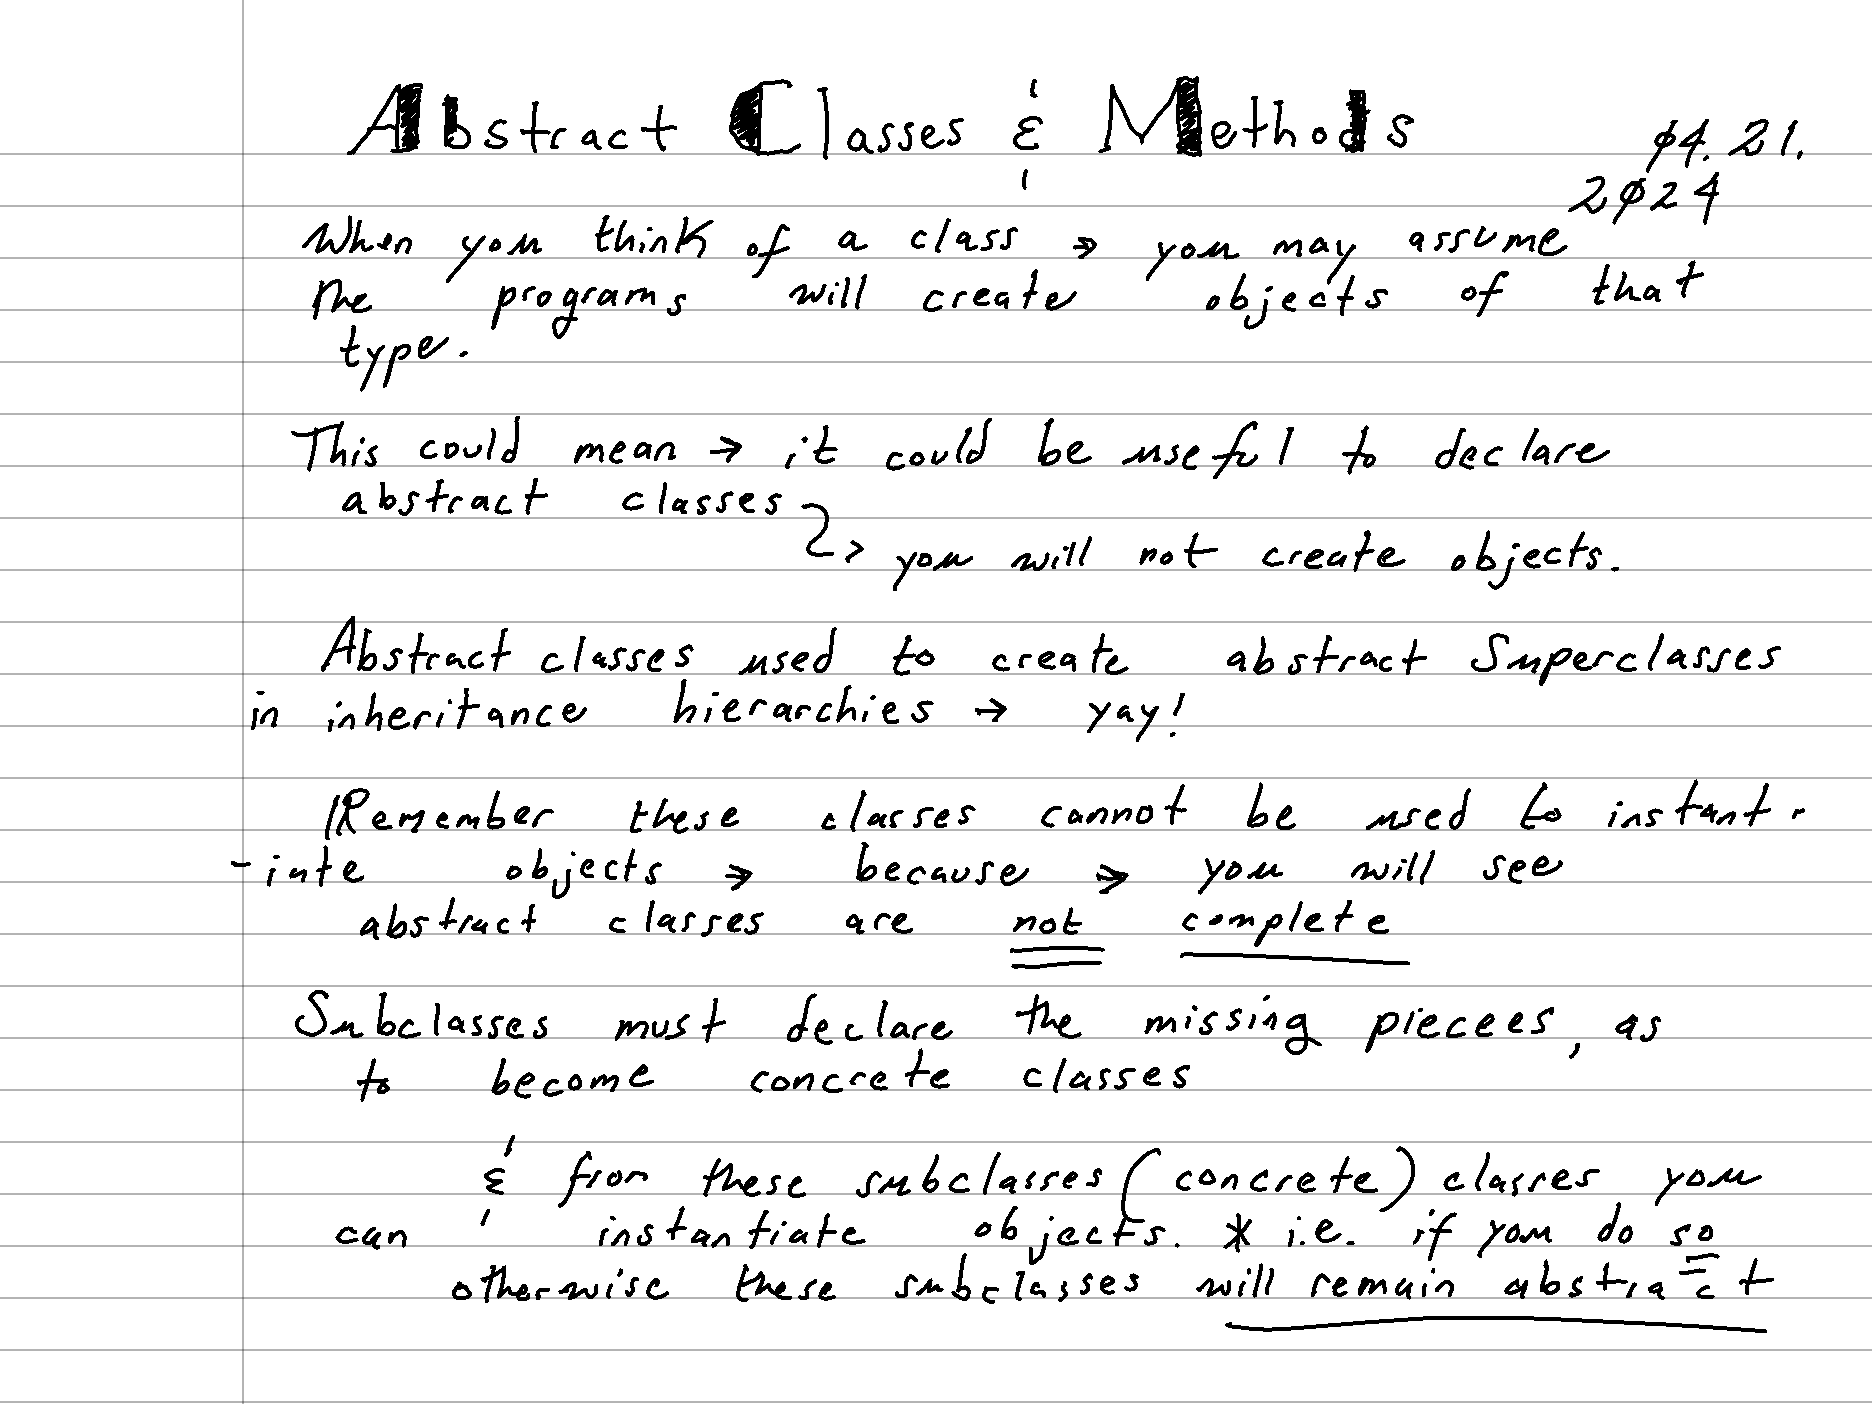 Abstract Classes & Methods
04.21.
2024
When you think of a class → you may assume
the programs will create objects of that
type.
This could mean → it could be useful to declare
abstract classes
→ you will not create objects.
Abstract classes used to create abstract Superclasses
in inheritance hierarchies → yay!
Remember these classes cannot be used to instant-
-iate objects → because → you will see
abstract classes are not complete
Subclasses must declare the missing piecees, as
to become concrete classes
& from these subclasses (concrete) classes you
can instantiate objects. * i.e. if you do so
otherwise these subclasses will remain abstract